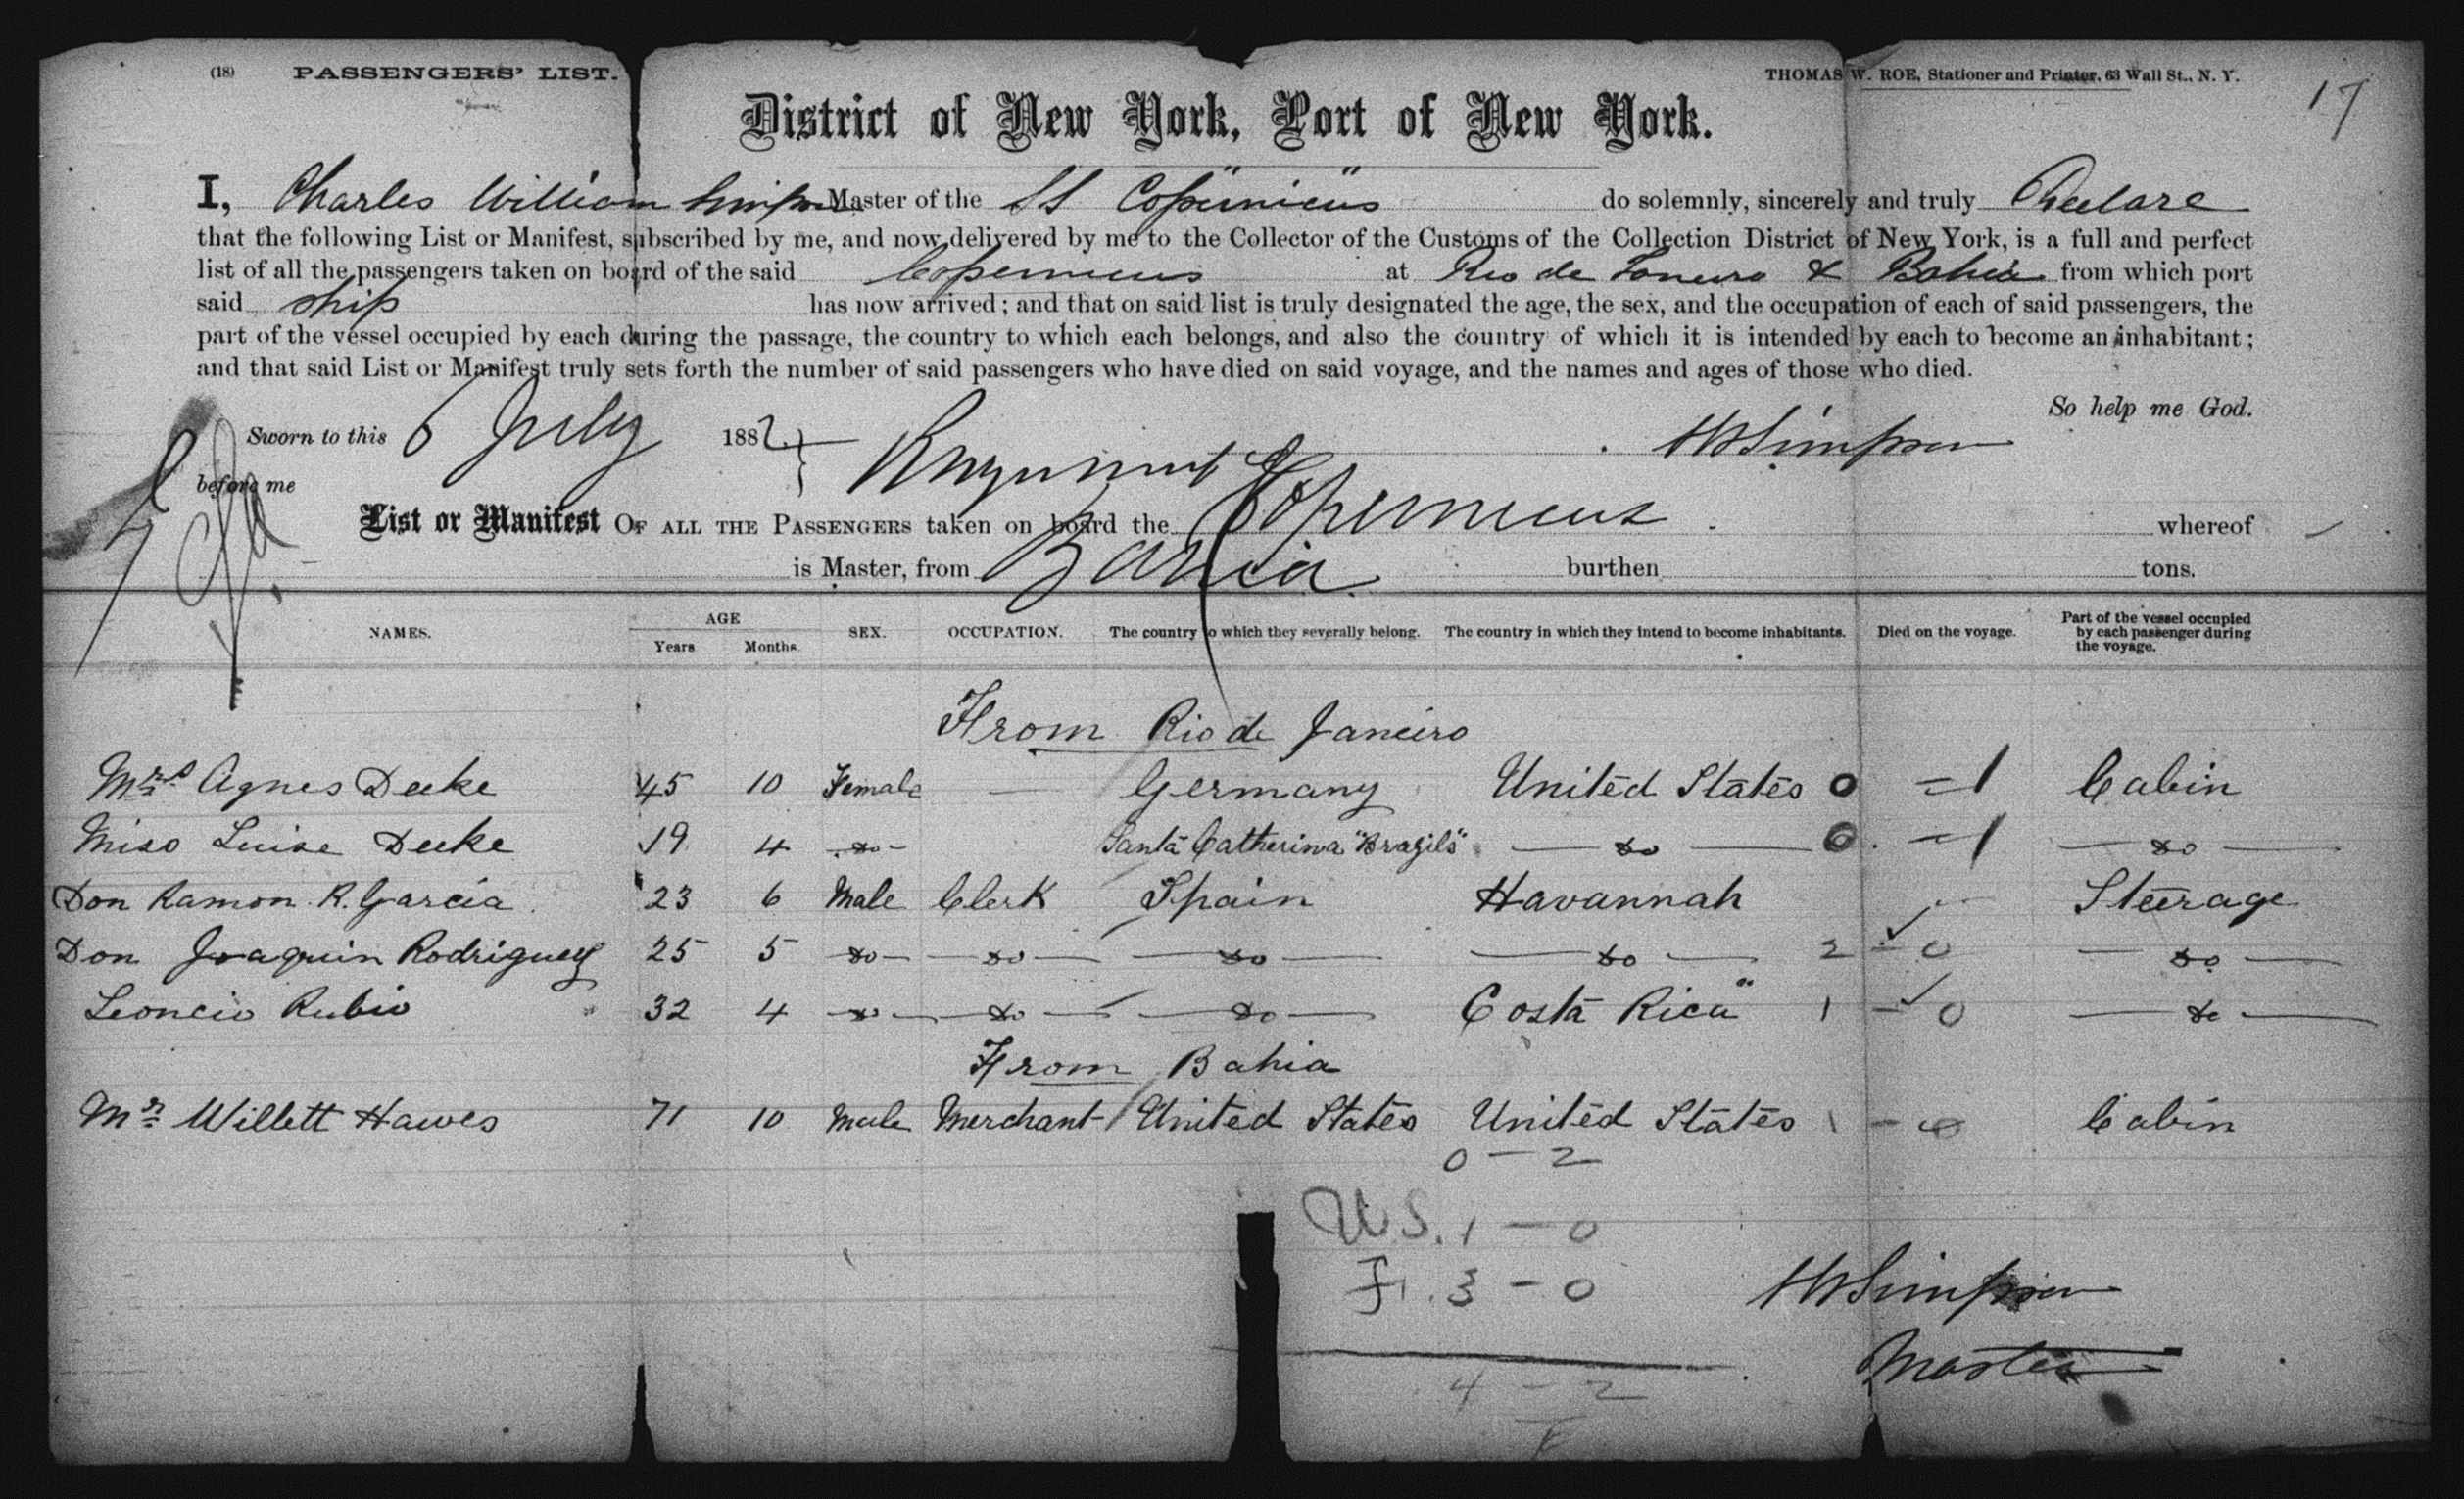 (18) PASSENGERS' LIST.
THOMAS W. ROE, Stationer and Printer, 63 Wall St., N. Y.
17
District of New York, Port of New York.
I, Charles William Simpson Master of the SS "Copernicus" do solemnly, sincerely and truly Declare
that the following List or Manifest, subscribed by me, and now delivered by me to the Collector of the Customs of the Collection District of New York, is a full and perfect
list of all the passengers taken on board of the said Copernicus at Rio de Janeiro & Bahia from which port
said ship has now arrived; and that on said list is truly designated the age, the sex, and the occupation of each of said passengers, the
part of the vessel occupied by each during the passage, the country to which each belongs, and also the country of which it is intended by each to become an inhabitant;
and that said List or Manifest truly sets forth the number of said passengers who have died on said voyage, and the names and ages of those who died.
So help me God.
Sworn to this 6 July 1882 Simpson
before me
List or Manifest OF ALL THE PASSENGERS taken on board the Copernicus whereof
is Master, from Bahia burthen tons.
NAMES. AGE Years Months SEX. OCCUPATION. The country to which they severally belong. The country in which they intend to become inhabitants. Died on the voyage. Part of the vessel occupied by each passenger during the voyage.
From Rio de Janeiro
Mrs Agnes Deeke 45 10 Female — Germany United States 0 = 1 Cabin
Miss Luise Deeke 19 4 do Santa Catherina "Brazils" do 0 - 1 do
Don Ramon R. Garcia 23 6 Male Clerk Spain Havannah Steerage
Don Joaquin Rodriguez 25 5 do do do do 2 - 0 do
Leoncio Rubio 32 4 do do do Costa Rica" 1 - 0 do
From Bahia
Mr Willett Hawes 71 10 Male Merchant United States United States 1 - 0 Cabin
0 - 2
U.S. 1 - 0
F. 3 - 0
Simpson
4 - 2
Master